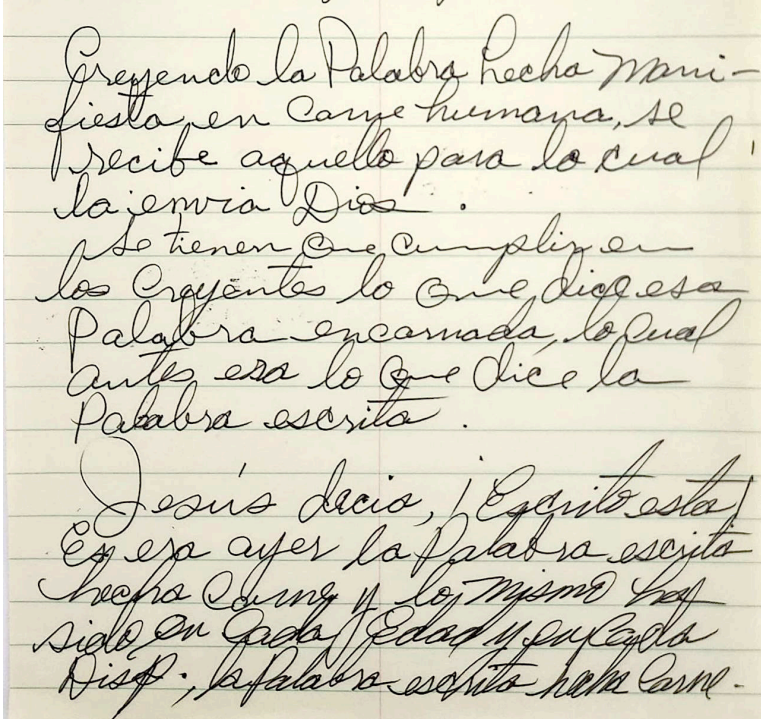 Creyendo la Palabra hecha mani-
fiesta en carne humana, se
recibe aquello para lo cual
la envia Dios.
Se tienen que cumplir en
los Creyentes lo que dice esa
Palabra encarnada, lo cual
antes era lo que dice la
Palabra escrita.
Jesús decia, ¡Escrito esta!
Es era ayer la Palabra escrita
hecha Carne y lo mismo ha
sido en cada Edad y en cada
Disp.; la Palabra escrita hecha Carne.